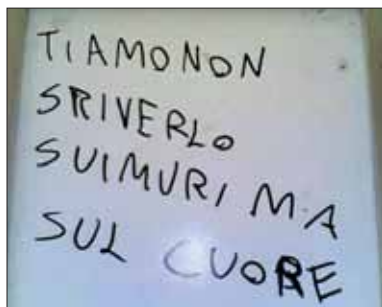 TI AMO NON
SRIVERLO
SUI MURI MA
SUL CUORE